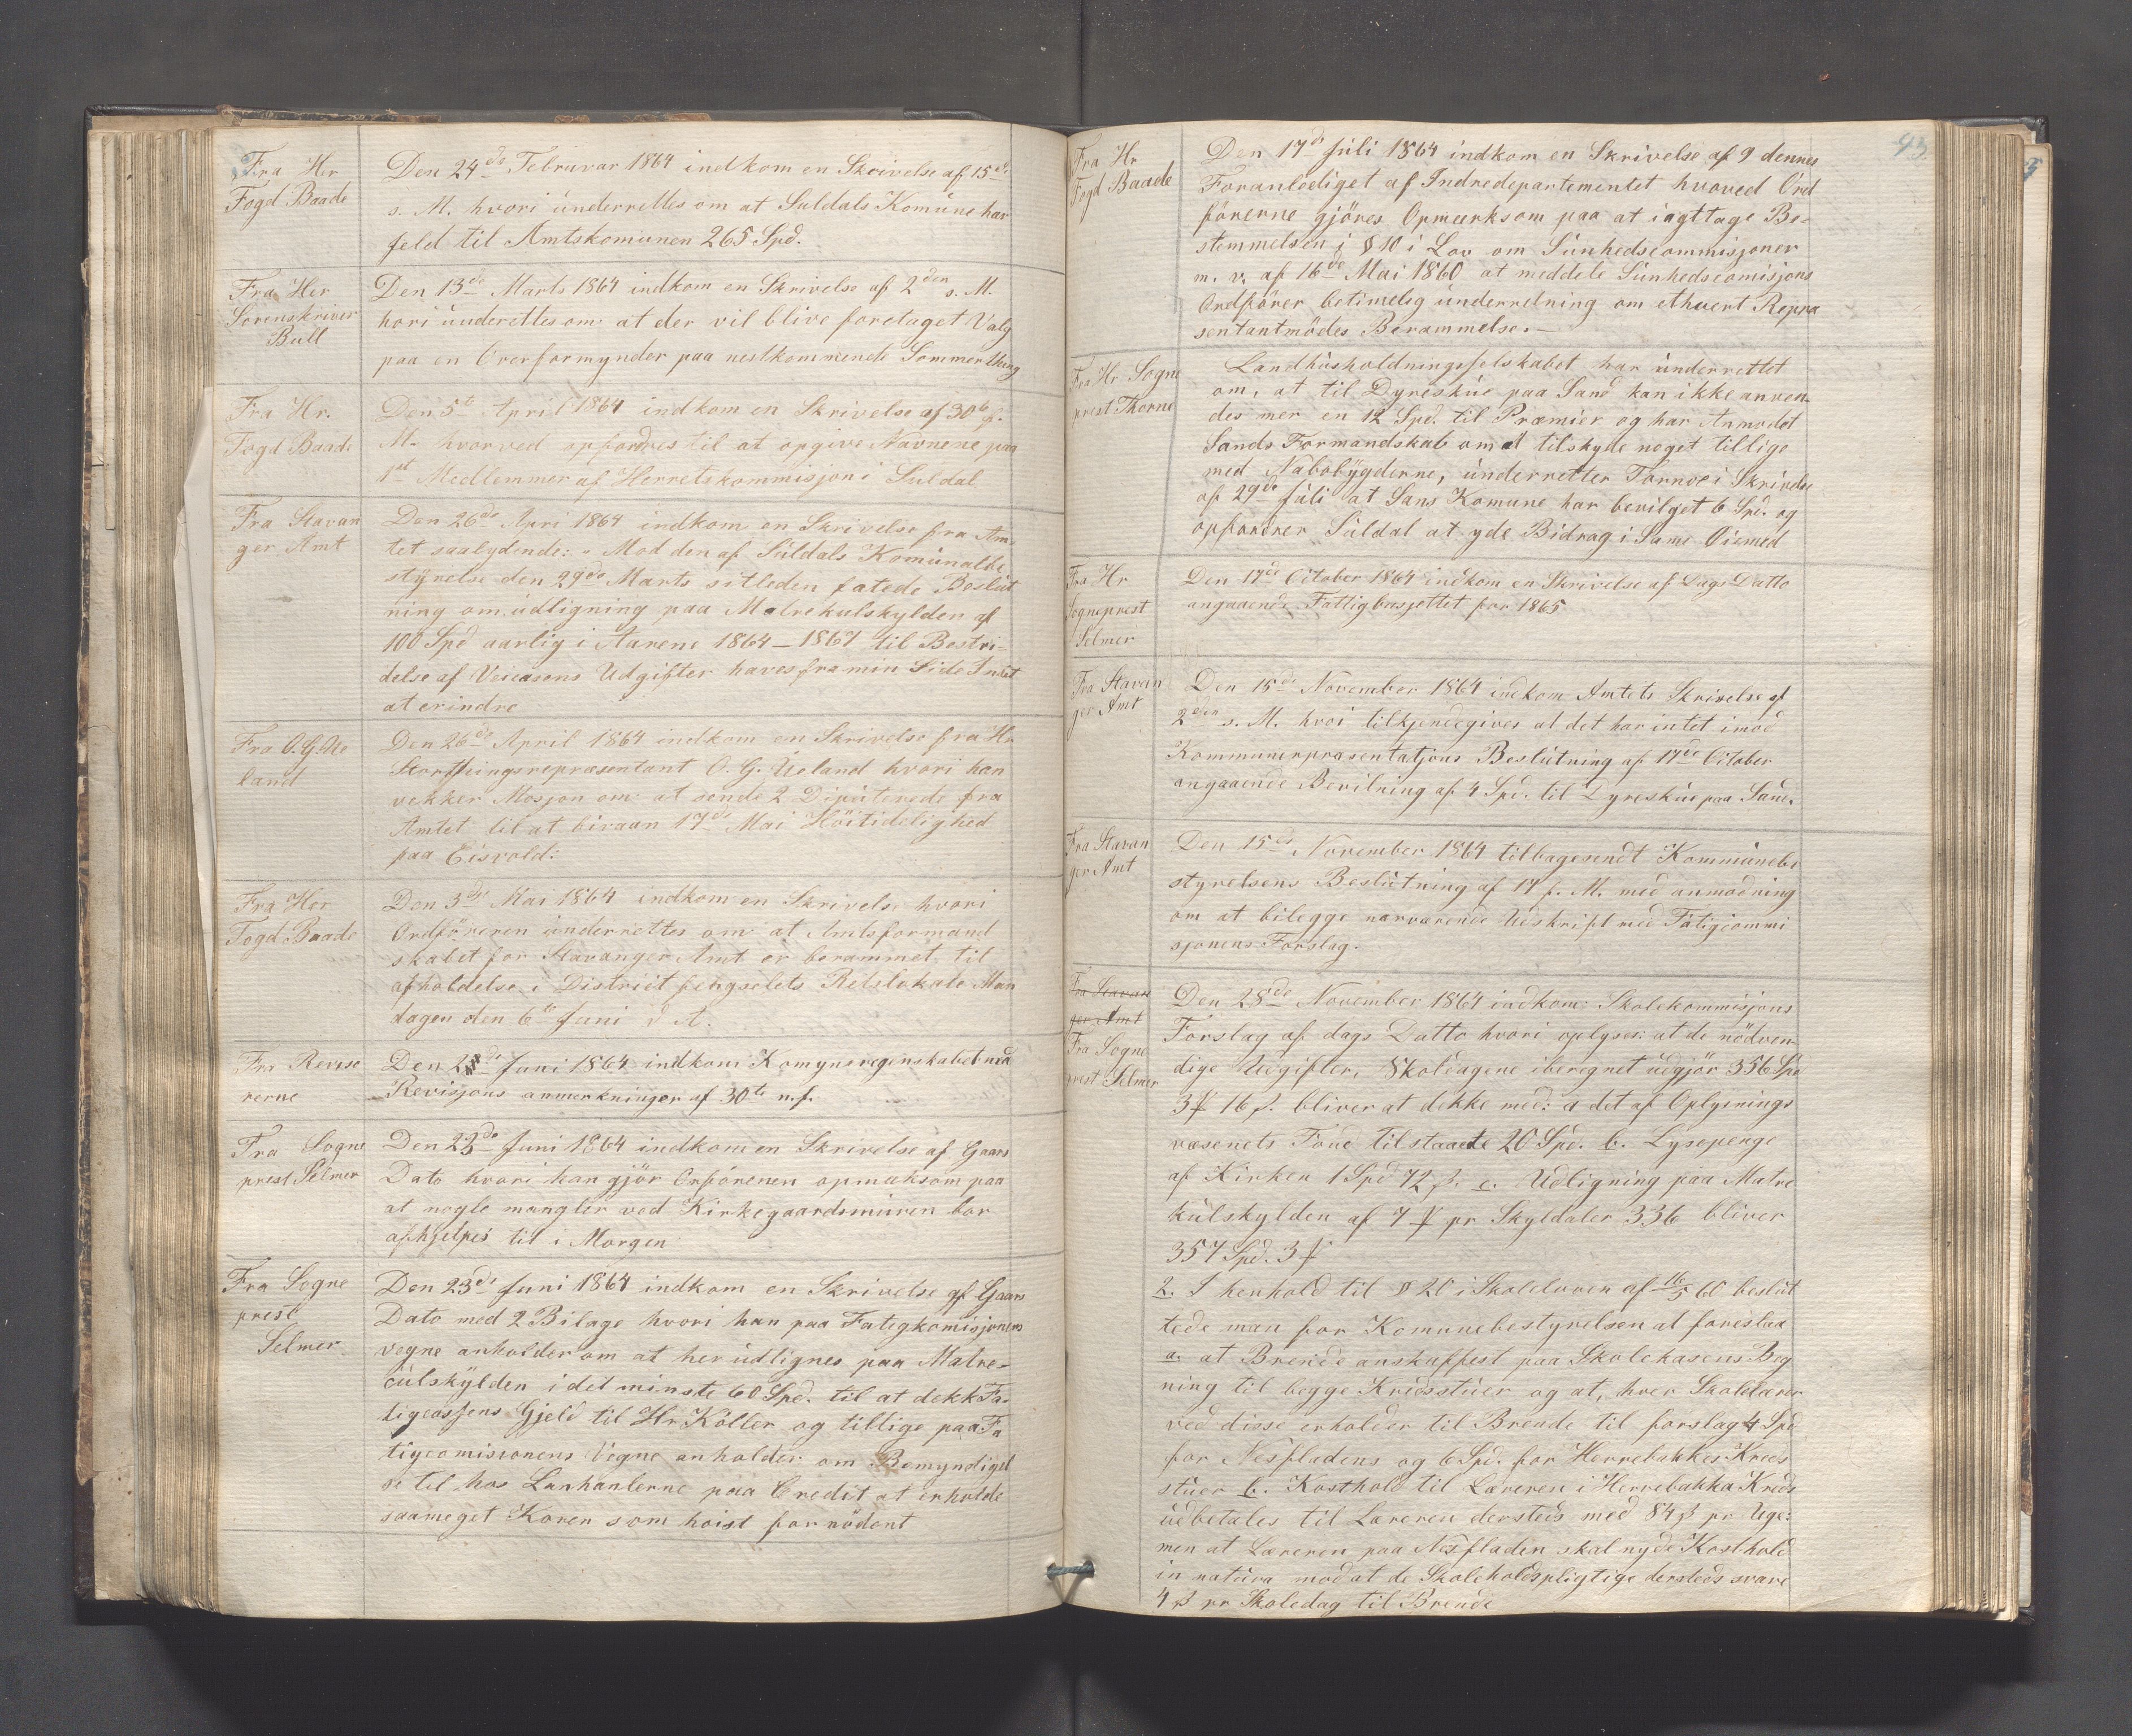 Fra Hr
Fogd Baade
Den 24de Februvar 1864 indkom en Skrivelse af 15de
s. M. hvori underrettes om at Suldals Komune har
feld til Amtskomunen 265 Spd.
Fra Her
Sorenskriver
Bull
Den 13de Marts 1864 indkom en Skrivelse af 2den s. M.
hori underettes om at der vil blive foretaget Valg
paa en Overformynder paa nestkommende Sommerthing
Fra Hr.
Fogd Baade
Den 5te April 1864 indkom en Skrivelse af 30te f.
M. hvorved opfordres til at opgive Navnene paa
1st Medlemmer af Herretskommisjon i Suldal
Fra Stavan
ger Amt
Den 26de Apri 1864 indkom en Skrivelse fra Am-
tet saalydende: Mod den af Suldals Komunalbe
styrelse den 29de Marts sitleden fatede Beslut
ning om udligning paa Matrekulskylden af
100 Spd aarlig i Aarene 1864-1867 til Bestri-
delse af Veicasens Udgifter haves fra min Side Intet
at erindre
Fra O. G. Ue
land
Den 26de April 1864 indkom en Skrivelse fra Hr
Storthingsrepræsentant O. G. Ueland hvori han
vekker Mosjon om at sende 2 Diputerede fra
Amtet til at bivaan 17de Mai Høitidelighed
paa Eisvold:
Fra Her
Fogd Baade
Den 3de Mai 1864 indkom en Skrivelse hvori
Ordføreren underrettes om at Amtsformand
skabet for Stavanger Amt er berammet til
afholdelse i Distriit fengselets Retslokale Man
dagen den 6te Juni d A.
Fra Reviso
rerne
Den 2 de Juni 1864 indkom Komynsregnskabet med
Revisjons anmerkninger af 30te n.f.
Fra Sogne
prest Selmer
Den 23de Juni 1864 indkom en Skrivelse af Gaars
Dato hvori han gjör Orförenen opmaksom paa
at nogle mangler ved Kirkegaardsmuren bør
afhjelpes til i Morgen
Fra Sogne
prest
Selmer
Den 23de Juni 1864 indkom en Skrivelse af Gaars
Dato med 2 Bilage hvori han paa Fatigkomisjonens
vegne anholder om at her udlignes paa Matre-
culskylden i det minste 60 Spd. til at dekk Fa-
tigcassens Gjeld til Hr Køller og tillige paa Fa
tigcomisionens Vegne anholder om Bemyndigel
se til hos Lanhanlerne paa Credit at erholde
saameget Koren som hoist fornødent
93
Fra Hr
Fogd Baade
Den 17de Juli 1864 indkom en Skrivelse af 9 dennes
Foranlediget af Indredepartementet hvoved Ord
förerne gjöres Opmerksom paa at iagttage Be-
stemmelsen i § 10 i Lov om Sunhedscommisjoner
m. v. af 16de Mai 1860 at meddele Sunhedscomisjons
Ordförer betimelig underretning om ethvert Repra
sentantmødes Berammelse.-
Fra Hr Sogne
prest Thorne
Landhusholdningsselskabet har underrettet
om, at til Dyreskue paa Sand kan ikke anven-
des mer en 12 Spd. til Præmier og har Anmodet
Sands Formandskab om at tilskyde noget tillige
med Nabobygderne, underretter Tornoe i Skrivelse
af 29de Juli at Sans Komune har bevilget 6 Spd. og
opfordrer Suldal at yde Bidrag i Same Øiemed
Fra Hr
Sogneprest
Selmer
Den 17de October 1864 indkom en Skrivelse af Dags Datto
angaaende Fattigbusjettet for 1865
Fra Stavan
ger Amt
Den 15de November 1864 indkom Amtets Skrivelse af
2den s. M. hvoi tilkjendegives at det har intet imod
Kommunerpræsentatjons Beslutning af 17de October
angaaende Bevilning af 4 Spd. til Dyreskue paa Sane.
Fra Stavan
ger Amt
Den 15de November 1864 tilbagesendt Kommunebe
styrelsens Beslutning af 17 f. M. med anmodning
om at bilegge nærværende Udskrift med Fatigcommi
sjonens Forslag.
Fra Stavan
ger Amt
Fra Sogne
prest Selmer
Den 28de November 1864 indkom Skolekommisjons
Forslag af dags Datto hvori oplyses: at de nödven
dige Udgifter, Skoldagene iberegnet udgjör 356 Spd
3 ₣ 16 ß. bliver at dekke med: a det af Oplysnings
væsenets Fond tilstaaete 20 Spd. b. Lysepenge
af Kirken 1 Spd 72 ß. c. Udligning paa Matre
kulskylden af 7 ₣ pr Skyldaler 336 bliver
357 Spd. 3 ₣
2. I henhold til § 20 i Skoleloven af 16/5 60 beslut
tede man for Komunebestyrelsen at foreslaa
a. at Brende anskaffest paa Skolekasens Beg
ning til begge Kredsstuer og at, hver Skolelærer
ved disse erholder til Brende til forslag 4 Spd
for Nesfladens og 6 Spd. for Herrebakkes Kreds
stuer b. Kosthold til Læreren i Herrebakka Kreds
udbetales til Læreren dersteds med 84 ß pr Uge:
men at Læreren paa Nesfladen skal nyde Kosthold
in natura mod at de Skoleholdspligtige dersteds svare
4 ß pr Skoledag til Brende